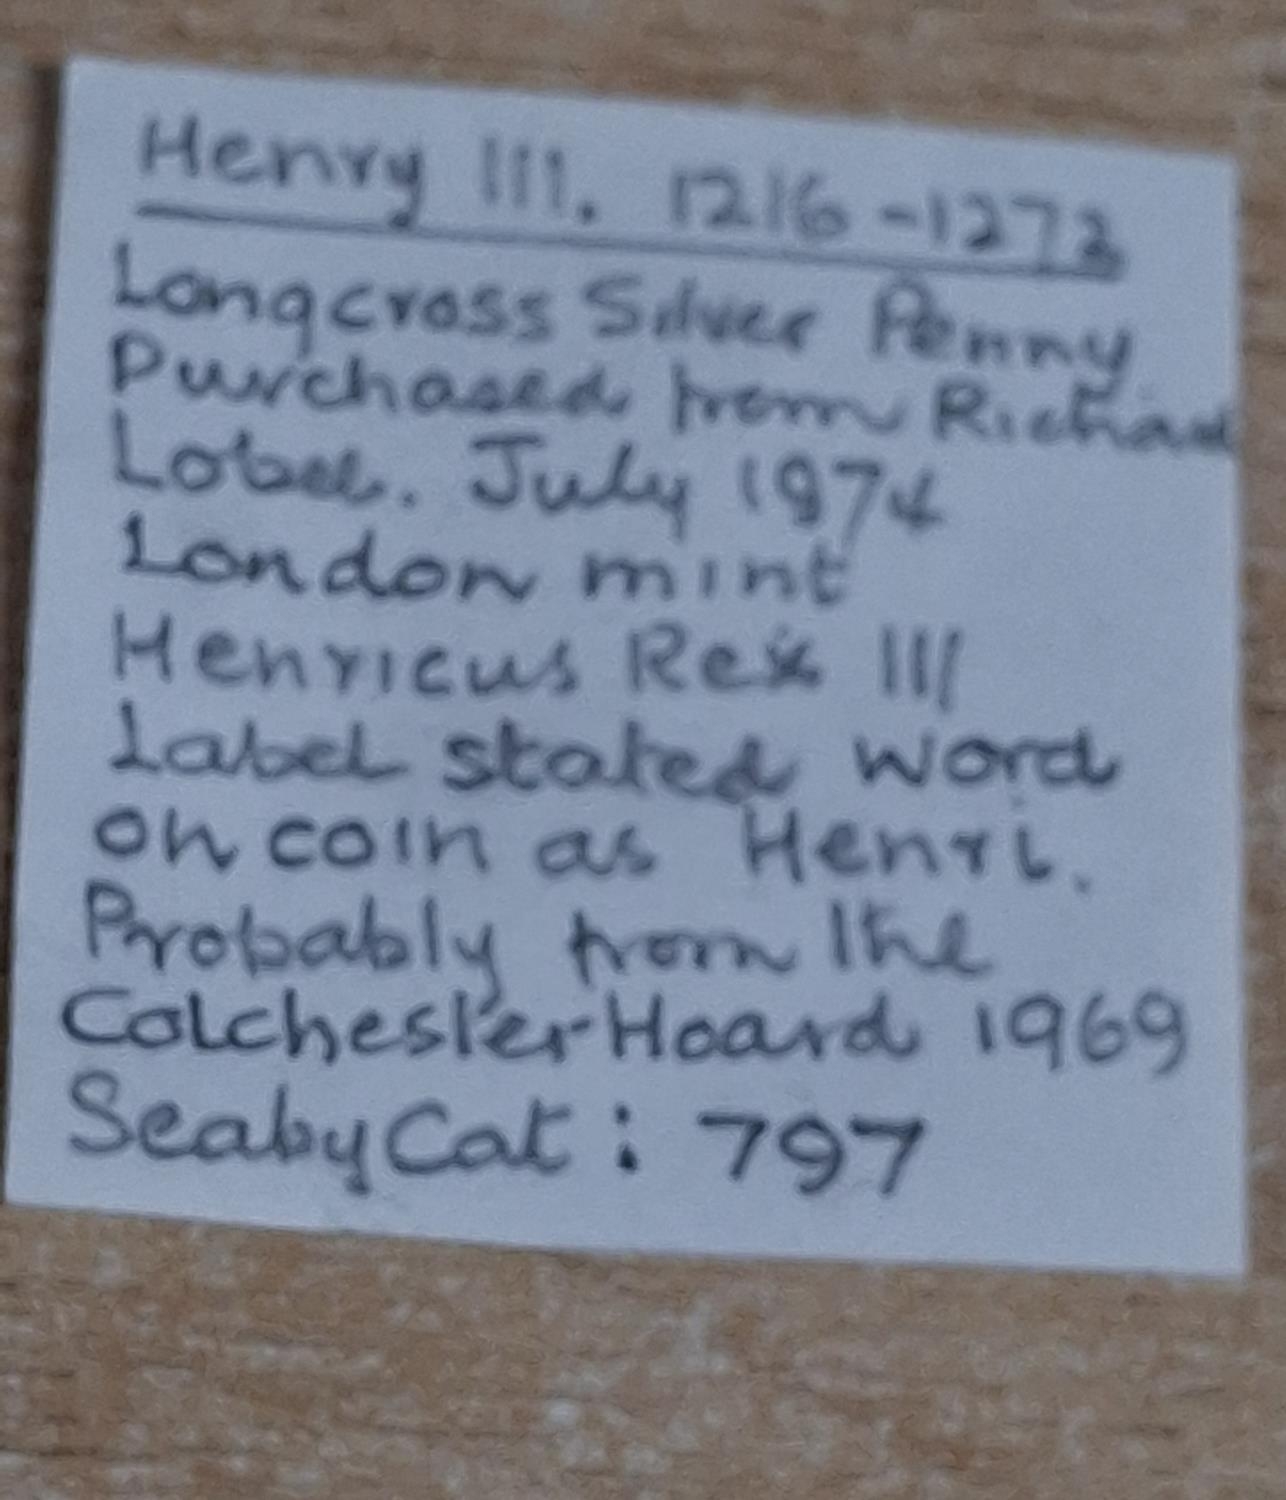 Henry III. 1216-1272
Longcross Silver Penny
Purchased from Richard
Lobel. July 1974
London mint
Henricus Rex III
Label stated word
on coin as Henri.
Probably from the
Colchester Hoard 1969
Seaby Cat: 797